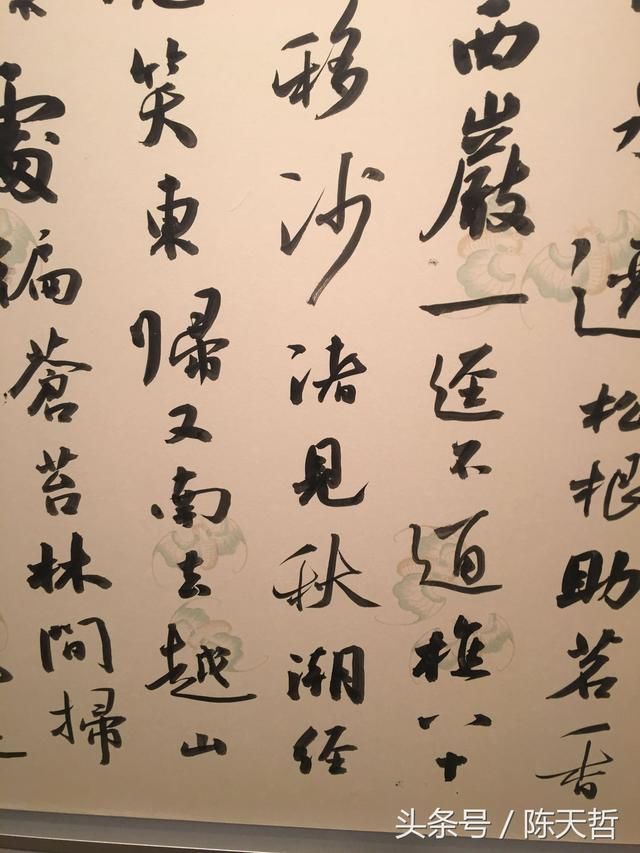 松根助茗香
西巖一逕不通樵八十
移沙渚見秋潮經
笑東歸又南去越山
處徧蒼苔林間掃
头条号 / 陈天哲